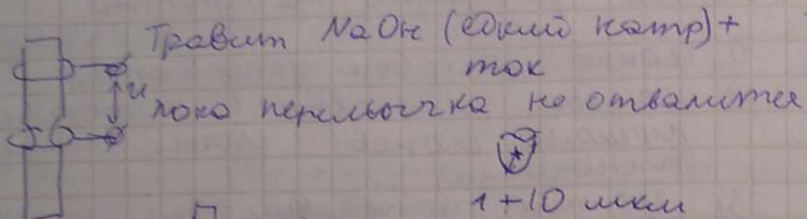 Травит NaOH (едкий натр) +
ток
u
пока перемычка не отвалится
+
1÷10 мкм